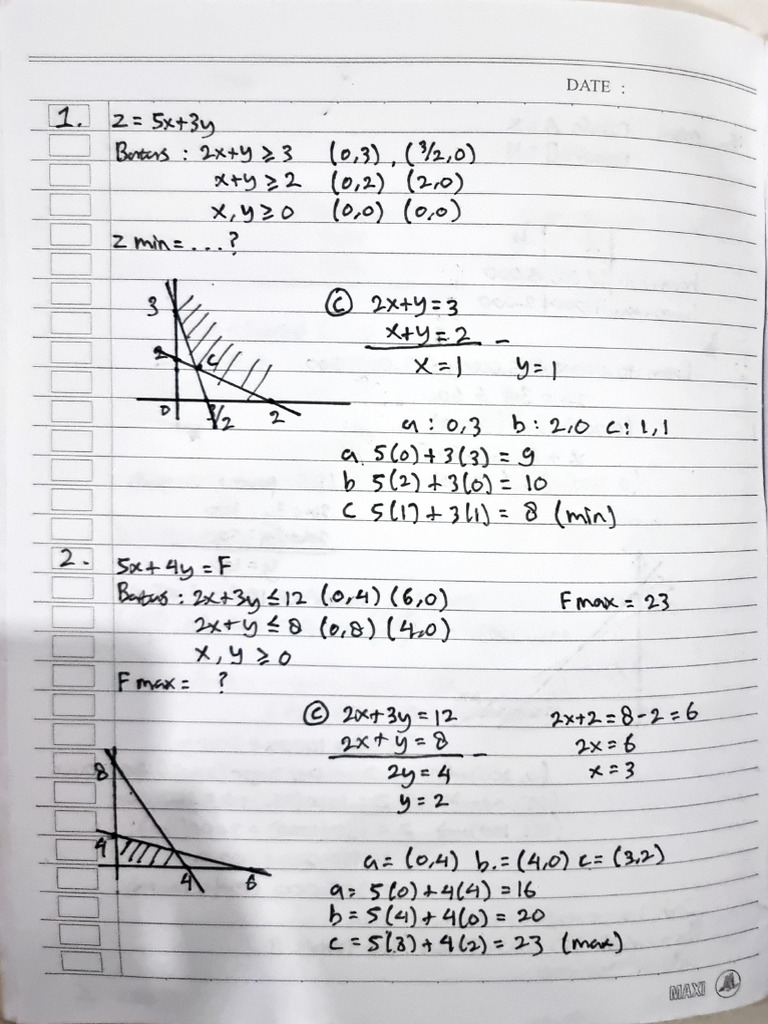 DATE :
1. z = 5x+3y
Batas : 2x+y ≥ 3 (0,3) , (3/2,0)
x+y ≥ 2 (0,2) (2,0)
x, y ≥ 0 (0,0) (0,0)
z min = ...?
3
2
c
0
3/2
2
(c) 2x+y = 3
x+y = 2 -
x = 1 y = 1
a : 0,3 b : 2,0 c : 1,1
a. 5(0) + 3(3) = 9
b 5(2) + 3(0) = 10
c 5(1) + 3(1) = 8 (min)
2. 5x + 4y = F
Batas : 2x+3y ≤ 12 (0,4) (6,0) F max = 23
2x+y ≤ 8 (0,8) (4,0)
x, y ≥ 0
F max = ?
(c) 2x+3y = 12 2x+2 = 8-2 = 6
2x+y = 8 - 2x = 6
2y = 4 x = 3
y = 2
8
4
4
6
a = (0,4) b. = (4,0) c = (3,2)
a = 5(0) + 4(4) = 16
b = 5(4) + 4(0) = 20
c = 5(3) + 4(2) = 23 (max)
MAXI